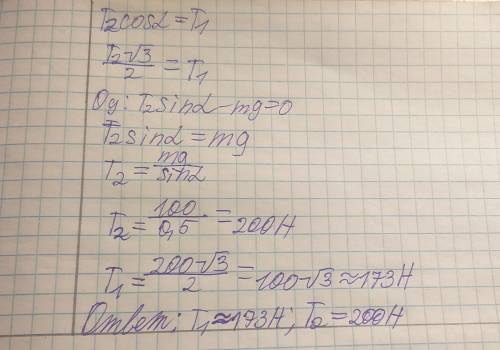 T₂cosα = T₁
T₂√3/2 = T₁
Oy: T₂sinα - mg = 0
T₂sinα = mg
T₂ = mg/sinα
T₂ = 100/0,5 = 200Н
T₁ = 200·√3/2 = 100·√3 ≈ 173Н
Ответ: T₁ ≈ 173Н; T₂ = 200Н